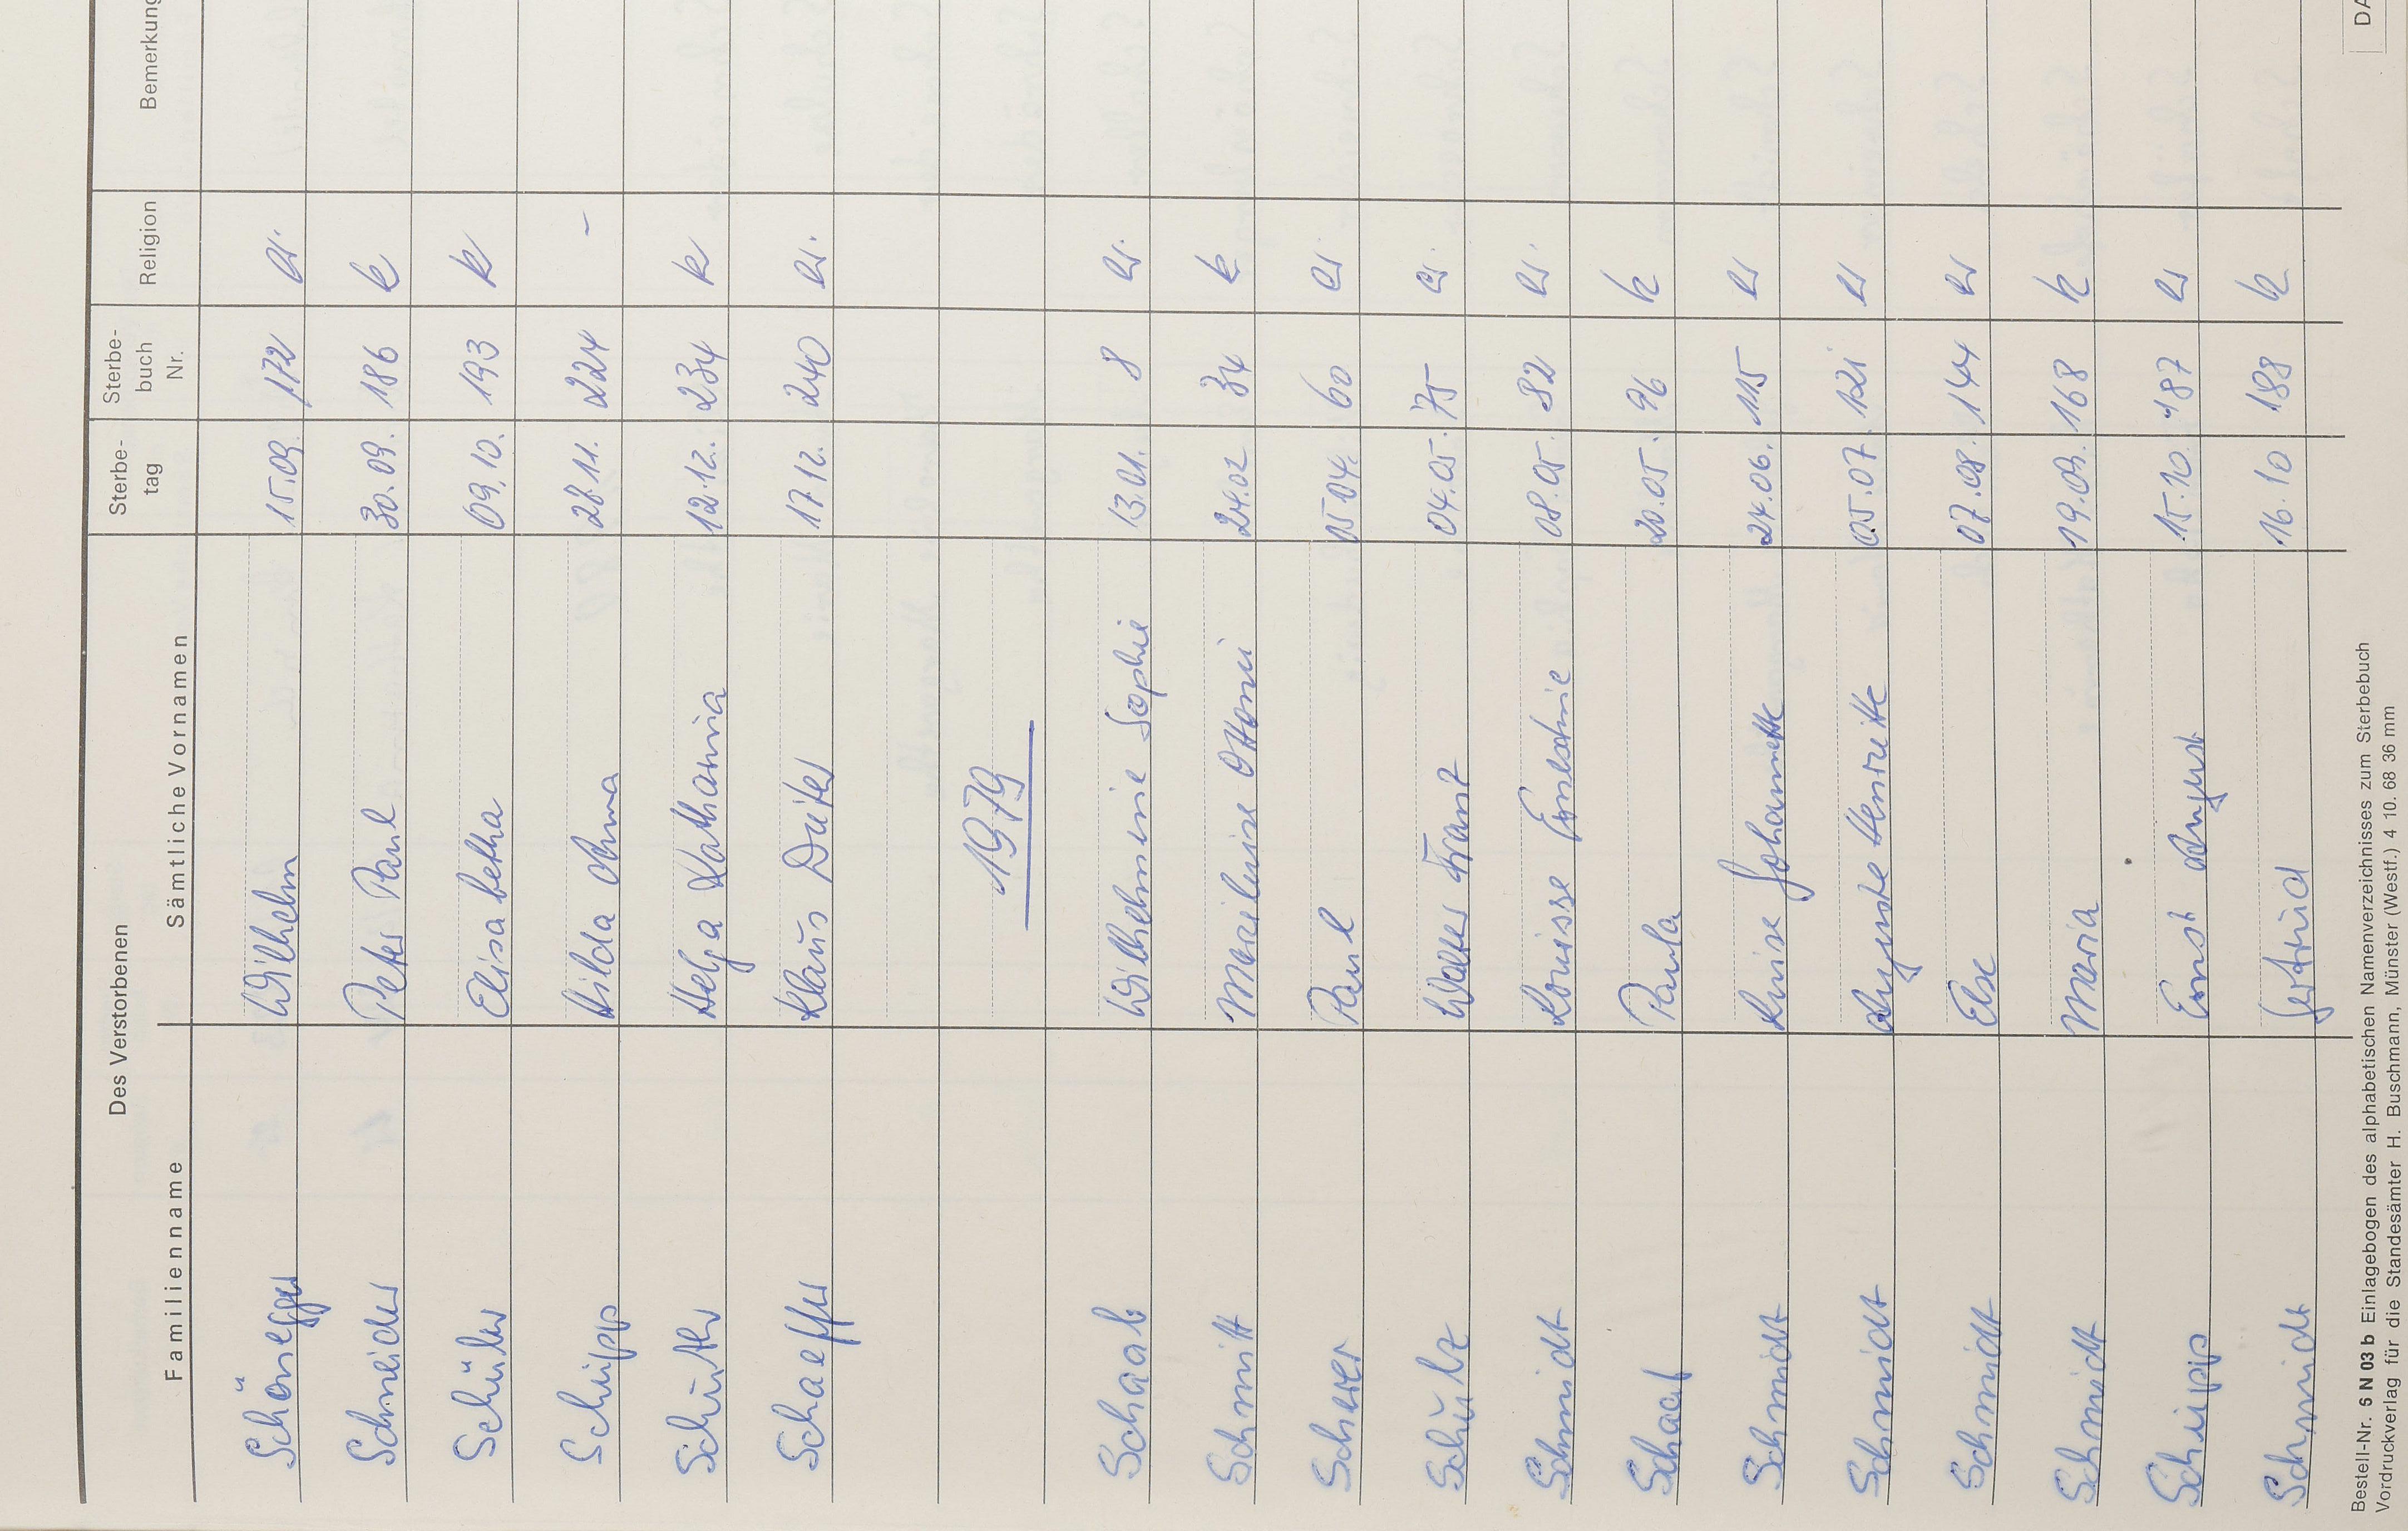 Des Verstorbenen
Familienname Sämtliche Vornamen Sterbe-tag Sterbe-buch Nr. Religion Bemerkung
Schönegger Wilhelm 15.09. 172 ev.
Schneider Peter Paul 30.09. 186 k
Schüler Elisabetha 09.10. 193 k
Schupp Hilda Anna 28.11. 224 –
Katharina 12.12. 234 k
Schaeffer Klaus Dieter 17.12. 240 ev.
1979
Schaab Wilhelmine Sophie 13.01. 8 ev.
Schmitt 24.02 34 k
Scherer Paul 05 04. 60 ev
Schulz Walter Franz 04.05. 75 ev.
Schmidt Louisse Ernestine 08.05. 82 ev.
Schaaf Paula 20.05. 96 k
Schmidt Luise Johannette 24.06. 115 ev
Schmidt Auguste Henriette 05.07. 121 ev
Schmidt Else 07.08. 144 ev
Schmidt Maria 19.09. 168 k
Schupp Ernst August 15.10. 187 ev
Schmidt Gertrud 16.10 188 k
Bestell-Nr. S N 03 b Einlagebogen des alphabetischen Namenverzeichnisses zum Sterbebuch
Vordruckverlag für die Standesämter H. Buschmann, Münster (Westf.) 4 10. 68 36 mm
DA